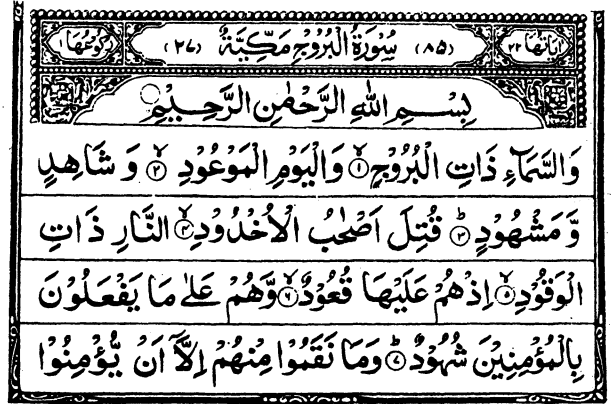 اٰيَاتُهَا ٢٢ (٨٥) سُوْرَةُ الْبُرُوْجِ مَكِّيَّةٌ (٢٧) رُكُوْعُهَا ١
بِسْمِ اللّٰهِ الرَّحْمٰنِ الرَّحِيْمِ
وَالسَّمَآءِ ذَاتِ الْبُرُوْجِ ۙ﴿١﴾ وَالْيَوْمِ الْمَوْعُوْدِ ۙ﴿٢﴾ وَ شَاهِدٍ
وَّ مَشْهُوْدٍ ؕ﴿٣﴾ قُتِلَ اَصْحٰبُ الْاُخْدُوْدِ ۙ﴿٤﴾ النَّارِ ذَاتِ
الْوَقُوْدِ ۙ﴿٥﴾ اِذْ هُمْ عَلَيْهَا قُعُوْدٌ ۙ﴿٦﴾ وَّهُمْ عَلٰى مَا يَفْعَلُوْنَ
بِالْمُؤْمِنِيْنَ شُهُوْدٌ ؕ﴿٧﴾ وَمَا نَقَمُوْا مِنْهُمْ اِلَّاۤ اَنْ يُّؤْمِنُوْا